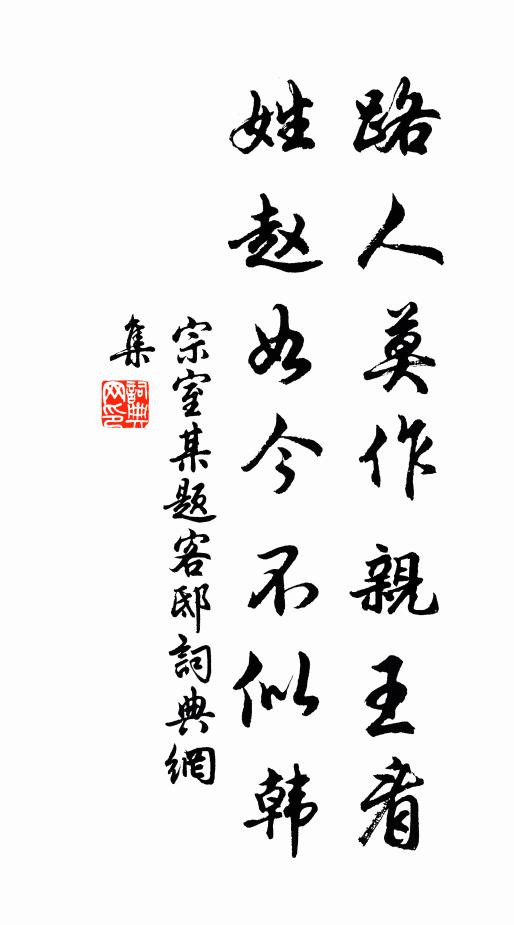 路人莫作親王看
姓赵如今不似韩
宗室某题客邸詞典網
集
詞典網印